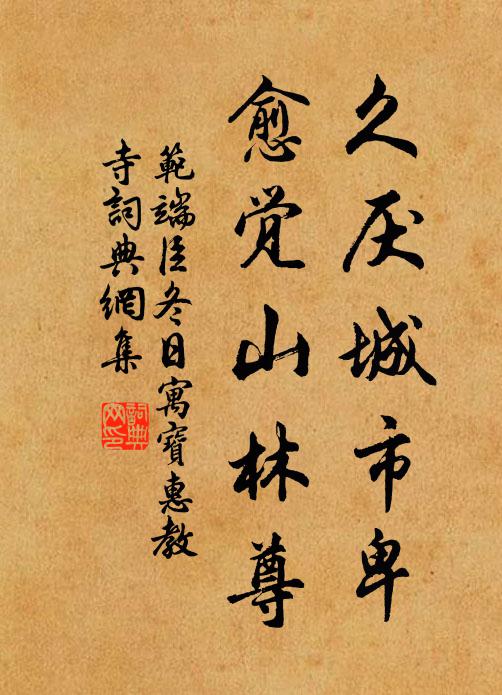 久厌城市卑
愈觉山林尊
範端臣冬日寓寶惠教
寺詞典網集
詞典
网印